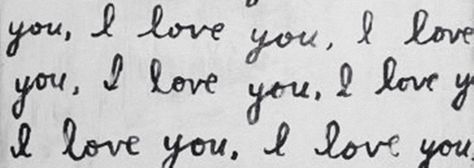 you, I love you, I love
you, I love you, I love y
I love you, I love you